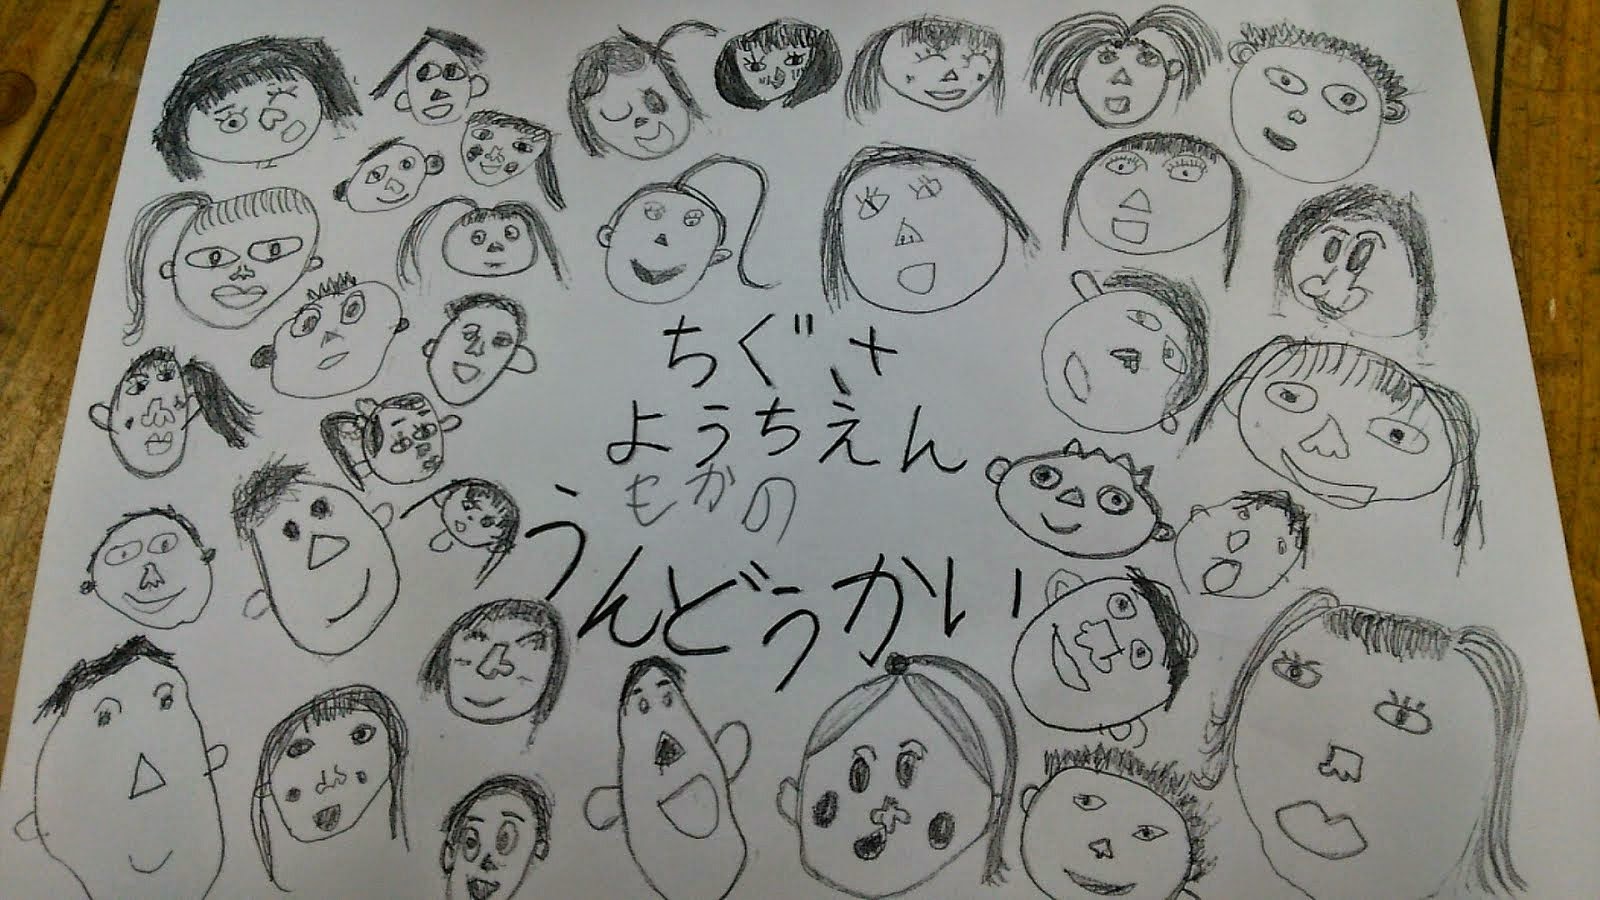 ちぐさ
ようちえん
もかの
うんどうかい